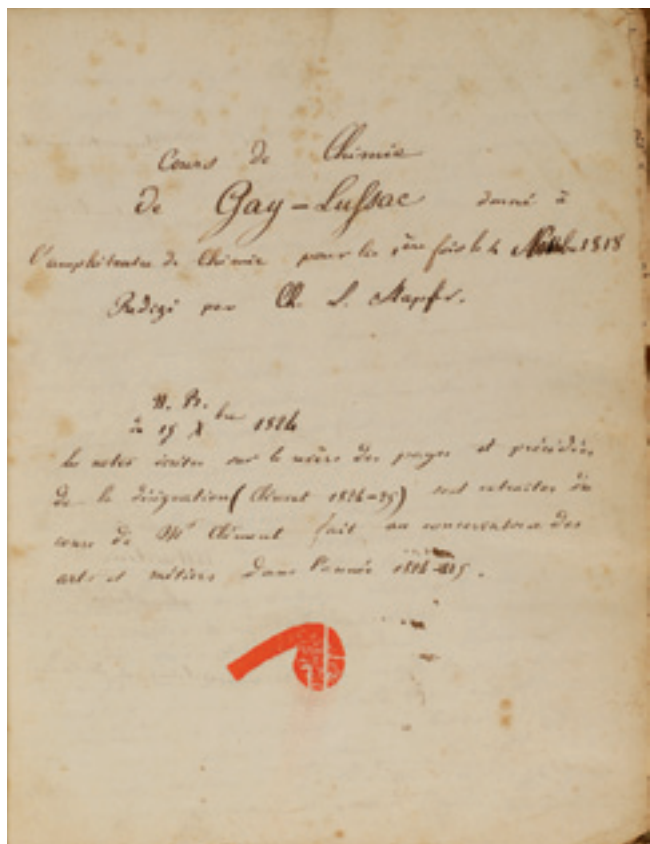 Cours de Chimie
de Gay-Lussac donné à
l'amphiteatre de Chimie pour la 1ère fois le 4 1818
Redigé par Ch. L. Stapfer.
N. B.
le 15 Xbre 1824
les notes écrites sur le des pages et précédées
de la désignation (Clément 1824-25) sont extraites du
cours de Mr Clément fait au conservatoire des
arts et métiers dans l'année 1824-25.